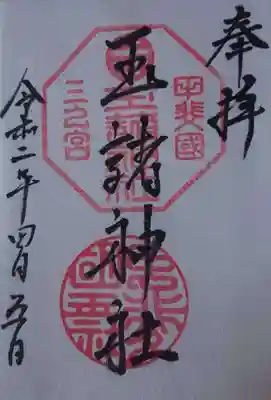 奉拝
甲斐國
三宮
玉諸神社
令和二年四月五日